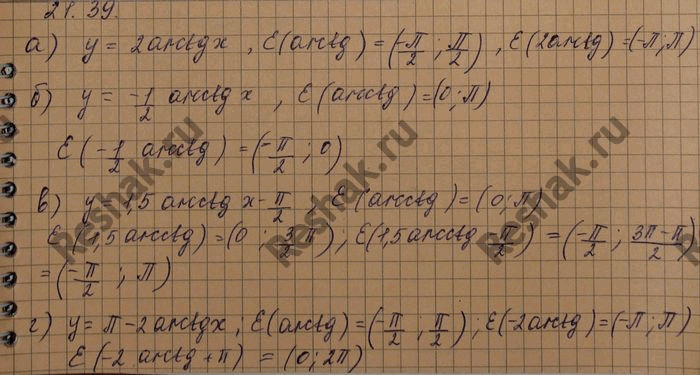 21.39.
а) y = 2arctgx, E(arctg) = (-π/2; π/2), E(2arctg) = (-π; π)
б) y = -1/2 arcctg x, E(arcctg) = (0; π)
E(-1/2 arcctg) = (-π/2; 0)
в) y = 1,5 arcctg x - π/2 E(arcctg) = (0; π)
E(1,5arcctg) = (0; 3/2 π); E(1,5arcctg - π/2) = (-π/2; 3π-π/2)
= (-π/2; π)
г) y = π - 2arctgx; E(arctg) = (-π/2; π/2); E(-2arctg) = (-π; π)
E(-2 arctg + π) = (0; 2π)
Reshak.ru
Reshak.ru
Reshak.ru